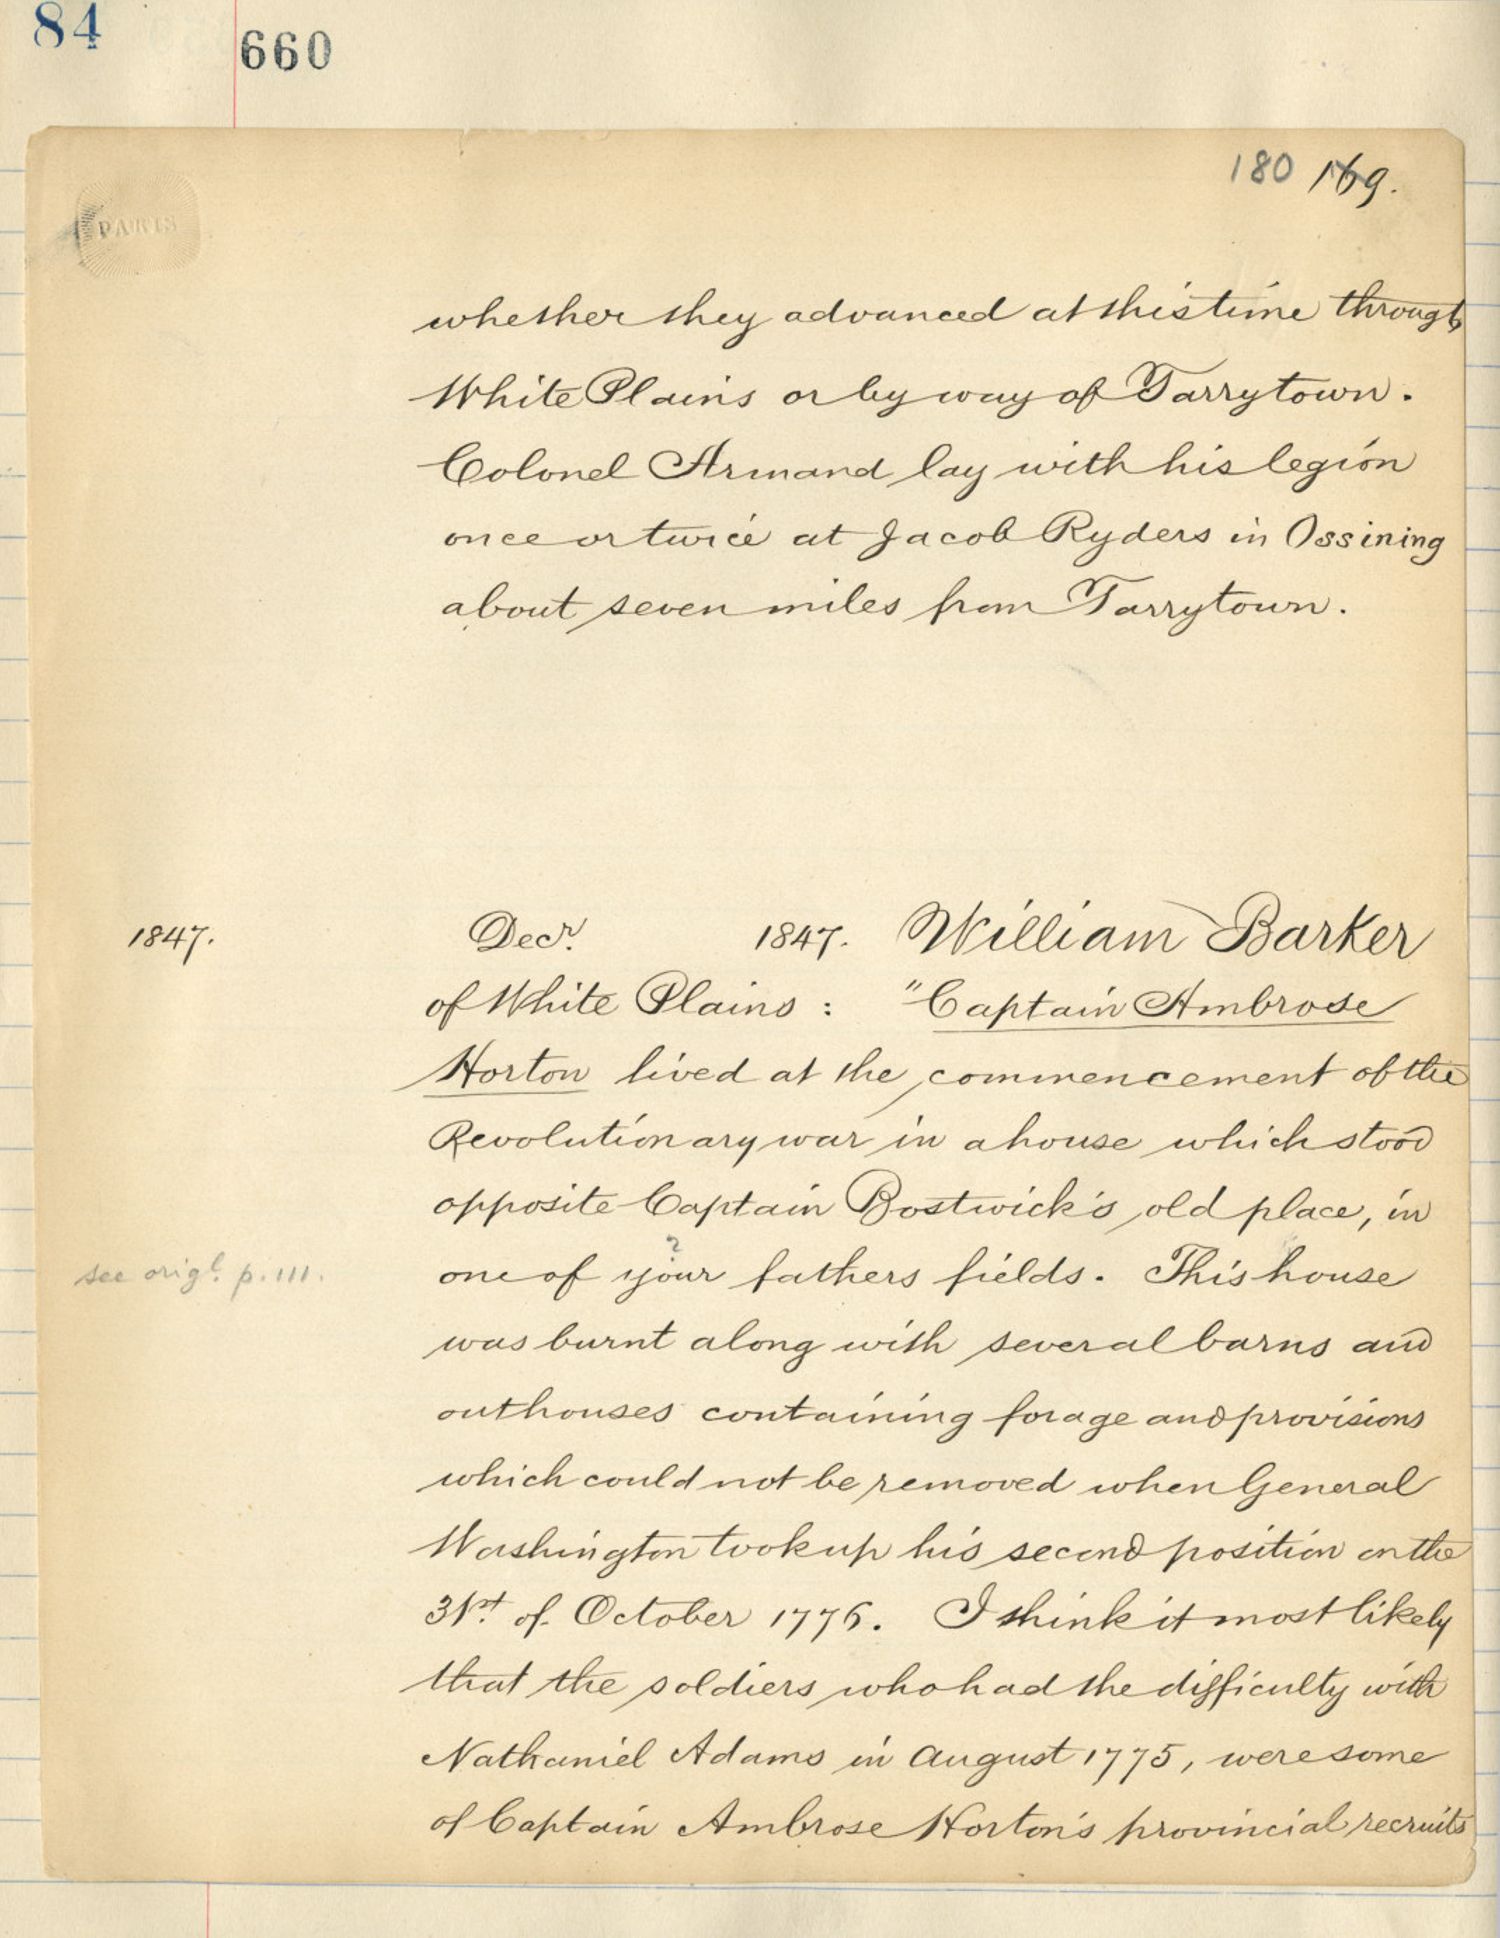 84
660
180 169.
PARIS
whether they advanced at this time through
White Plains or by way of Tarrytown.
Colonel Armand lay with his legion
once or twice at Jacob Ryders in Ossining
about seven miles from Tarrytown.
1847.
Decr. 1847. William Barker
of White Plains : "Captain Ambrose
Horton lived at the commencement of the
Revolutionary war in a house which stood
opposite Captain Bostwick's old place, in
?
one of your fathers fields. This house
see origl. p. 111.
was burnt along with several barns and
outhouses containing forage and provisions
which could not be removed when General
Washington took up his second position on the
31st. of October 1776. I think it most likely
that the soldiers who had the difficulty with
Nathaniel Adams in August 1775, were some
of Captain Ambrose Horton's provincial recruits